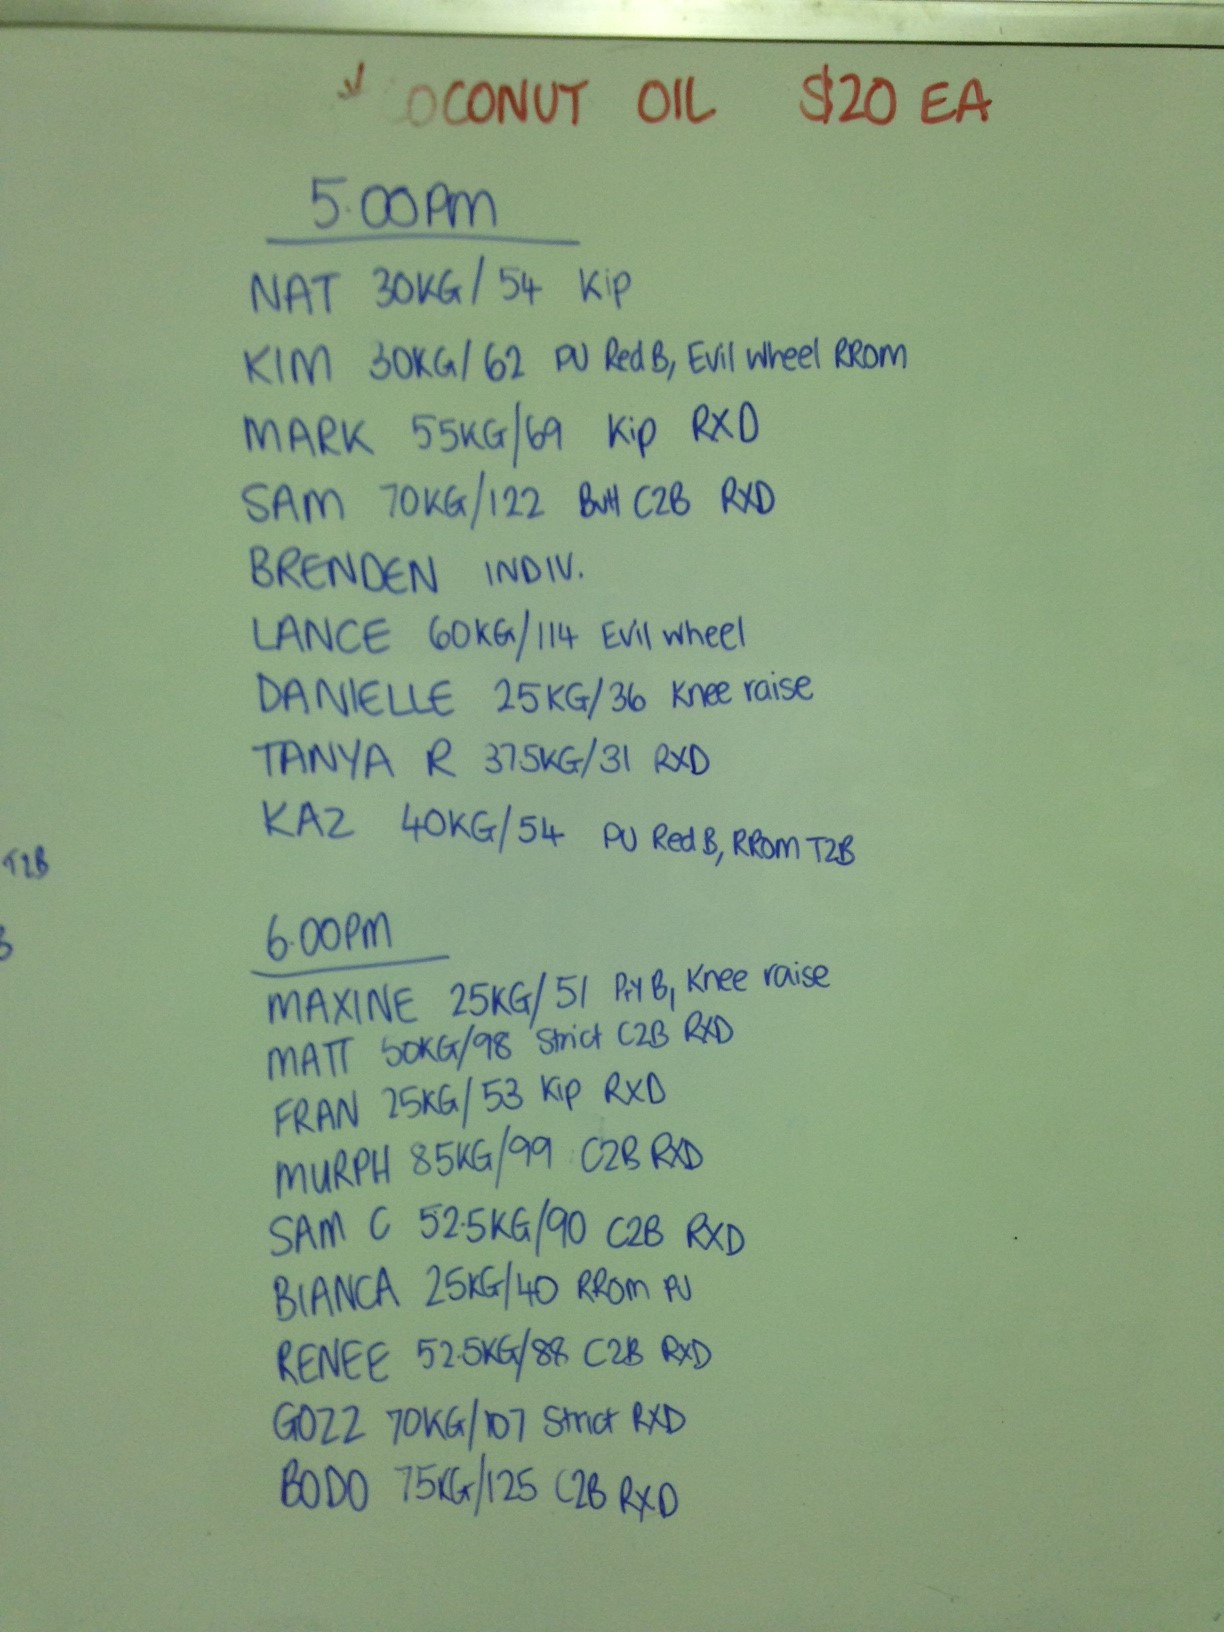 OCONUT OIL $20 EA
5.00PM
NAT 30KG/54 Kip
KIM 30KG/62 PU Red B, Evil Wheel RROM
MARK 55KG/69 Kip RXD
SAM 70KG/122 Butt C2B RXD
BRENDEN INDIV.
LANCE 60KG/114 Evil wheel
DANIELLE 25KG/36 Knee raise
TANYA R 37.5KG/31 RXD
KAZ 40KG/54 PU Red B, RROM T2B
T2B
6.00PM
MAXINE 25KG/51 B, Knee raise
MATT 50KG/98 Strict C2B RXD
FRAN 25KG/53 Kip RXD
MURPH 85KG/99 C2B RXD
SAM C 52.5KG/90 C2B RXD
BIANCA 25KG/40 RROM PU
RENEE 52.5KG/88 C2B RXD
GOZZ 70KG/107 Strict RXD
BODO 75KG/125 C2B RXD